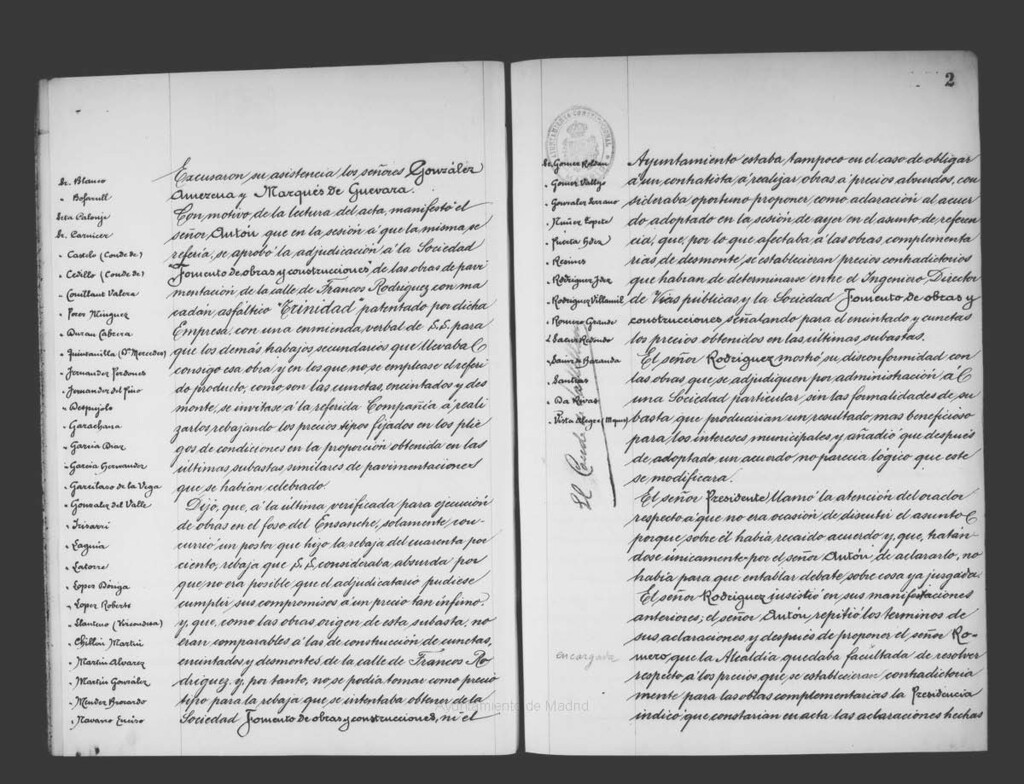 Sr. Blanco
" Bofarull
Srta Calonje
Sr. Carnicer
" Castelo (Conde de)
" Cedillo (Conde de)
" Comillant Valera
" Perez Minguez
" Duran Cabrera
" Quintanilla (Dª Mercedes)
" Fernandez Perdones
" Fernandez del Pino
" Despujols
" Garachana
" Garcia Diaz
" Garcia Hernandez
" Garcilaso de la Vega
" Gonzalez del Valle
" Laguia
" Latorre
" Lopez Dóriga
" Lopez Roberts
" Llanteno (Vizcondesa)
" Chillón Martin
" Martin Alvarez
" Martin González
" Mendez Bernardo
" Navarro Enciso
Excusaron su asistencia los señores González
Amezcua y Marqués de Guevara.
Con motivo de la lectura del acta, manifestó el
señor Antón que en la sesión a que la misma se
referia, se aprobó la adjudicación á la Sociedad
"Fomento de obras y construcciones, de las obras de pavi
mentación de la calle de Francos Rodriguez con ma
cadán asfáltico "Trinidad" patentado por dicha
Empresa con una enmienda verbal de S.S. para
que los demás trabajos secundarios que llevaba
consigo esa obra y en los que no se emplease el referi
do producto, como son las cunetas, encintados y des
monte, se invitase á la referida Compañía á reali
zarlos, rebajando los precios tipos fijados en los plie
gos de condiciones en la proporción obtenida en las
últimas subastas similares de pavimentaciones
que se habian celebrado.
Dijó, que, á la última verificada para ejecución
de obras en el foso del Ensanche, solamente con-
currió un postor que hizo la rebaja del cuarenta por
ciento, rebaja que S.S. consideraba absurda por
que no era posible que el adjudicatario pudiese
cumplir sus compromisos á un precio tan infimo
y, que, como las obras origen de esta subasta, no
eran comparables á las de construcción de cunetas,
encintados y desmontes de la calle de Francos Ro
driguez, y, por tanto, no se podia tomar como precio
tipo para la rebaja que se intentaba obtener de la
Sociedad Fomento de obras y construcciones, ni el
2
Sr. Gomez Roldan
" Gomez Vallejo
" Gonzalez Serrano
" Nuñez Topete
" Resines
" Rodriguez
" Rodriguez Villamil
" Romero Grande
" Saura Baranda
" Santias
" Vista Alegre (Marq)
El Conde de Vallellano
encargada
Ayuntamiento estaba tampoco en el caso de obligar
á un contratista á realizar obras á precios absurdos, con
sideraba oportuno proponer como aclaración al acuer
do adoptado en la sesión de ayer en el asunto de referen
cia, que, por lo que afectaba á las obras, complementa
rias, de desmonte, se establecieran precios contradictorios
que habran de determinarse entre el Ingeniero Director
de Vias públicas y la Sociedad Fomento de obras y
construcciones señalando para el encintado y cunetas
los precios obtenidos en las últimas subastas.
El señor Rodriguez mostró su disconformidad con
las obras, que se adjudiquen por administración á
una Sociedad particular sin las formalidades de su
basta que producirian un resultado mas beneficioso
para los intereses municipales y añadió que después
de adoptado un acuerdo no parecia lógico que este
se modificara.
El señor Presidente llamó la atención del orador
respecto á que no era ocasión de discutir el asunto
porque sobre él habia recaido acuerdo y que, tratán
dose únicamente por el señor Antón de aclararlo, no
había para que entablar debate sobre cosa ya juzgada.
El señor Rodriguez insistió en sus manifestaciones
anteriores; el señor Antón, repitió los terminos de
sus aclaraciones y después de proponer el señor Ro-
mero, que la Alcaldia quedaba facultada de resolver
respecto á los precios que se establecieran contradictoria
mente para las obras complementarias la Presidencia
indicó que constarian en acta las aclaraciones hechas
Ayuntamiento de Madrid